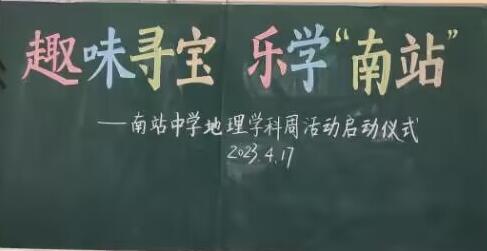 趣味寻宝 乐学“南站”
——南站中学地理学科周活动启动仪式
2023.4.17